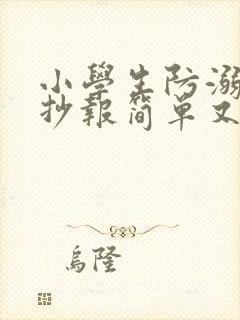 小學生防溺
抄報簡單又
烏隆